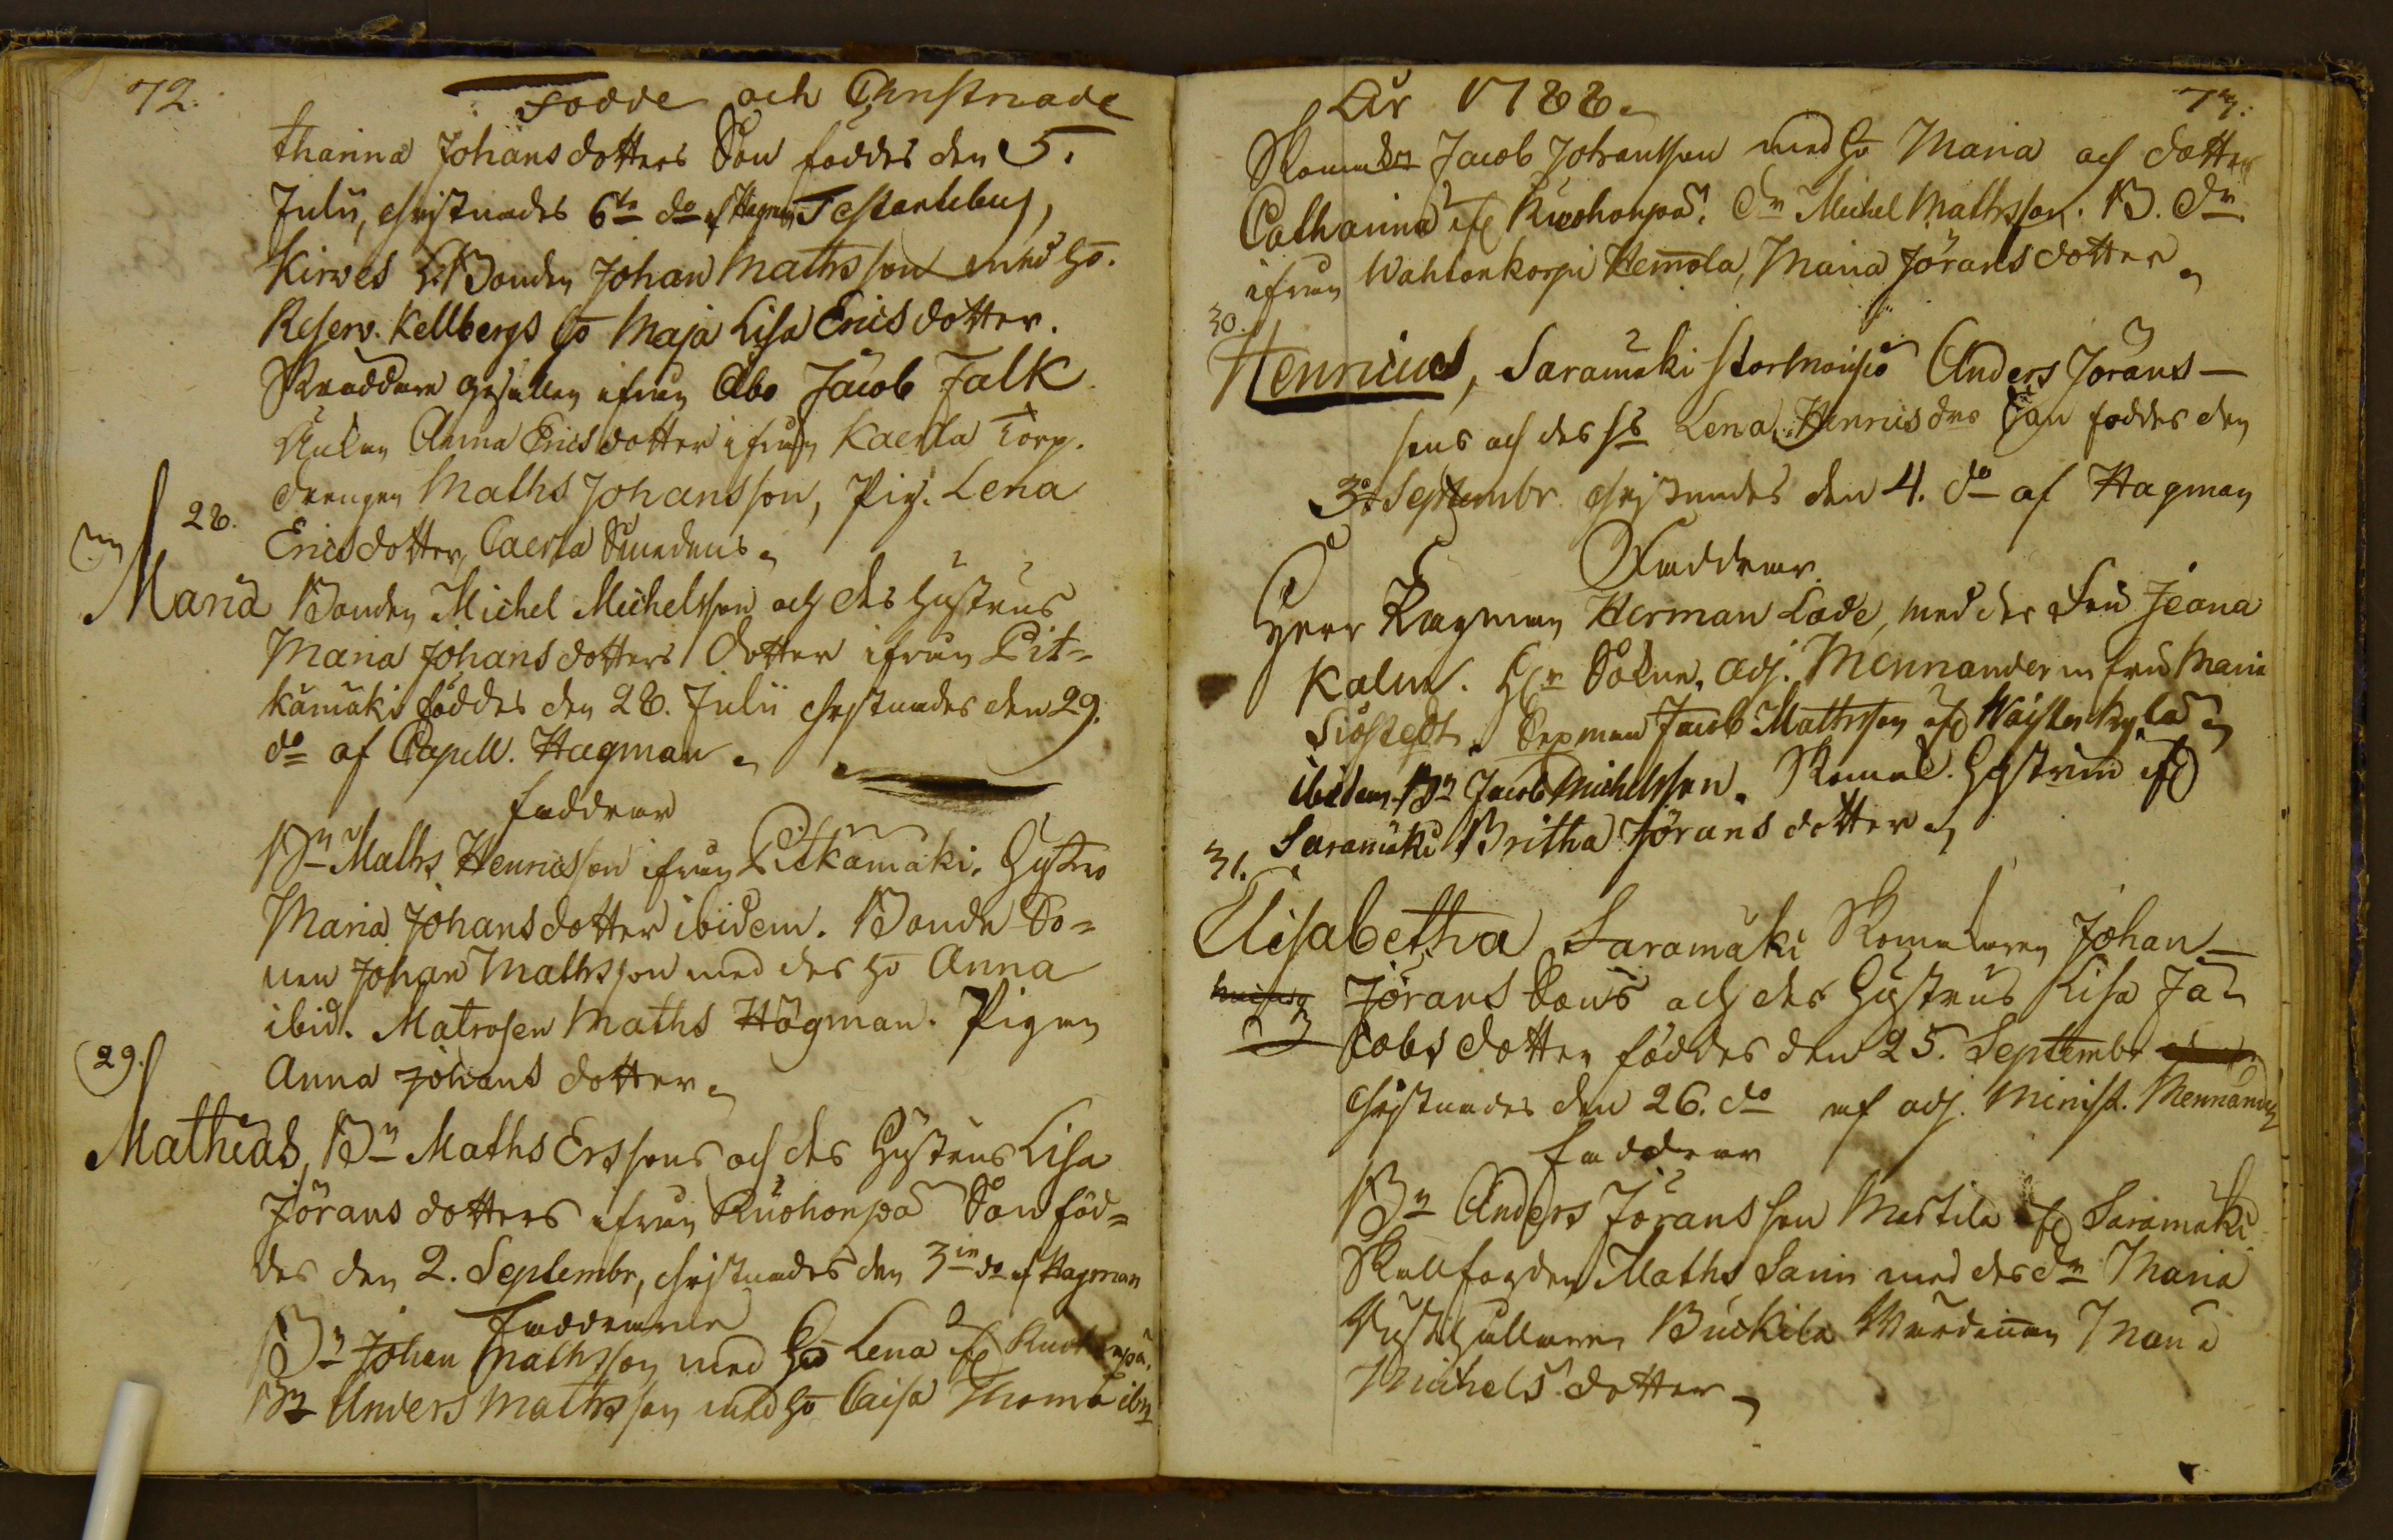 72.
Födde och Christnade
tharina Johansdotters Son föddes den 5.
Julii, christnades 6te do af Hagman Testantibus,
Kirves Bonden Johan Mathsson med Ho.
Reserv. Kellbergs Ho Maja Lisa Ericsdotter.
Skräddare gesällen ifrån Åbo Jacob Falk
Anna Ericsdotter ifrån Kaerla Torp.
drengen Maths Johansson, Pig. Lena
Ericsdotter, Caerla Smedens.
28.
Maria Bonden Michel Michelsson och des Hustrus
Maria Johansdotters Dotter ifrån Pit=
kämäki föddes den 28. Julii christnades den 29.
do af Capell. Hagman.
faddrar
Bn Maths Henricsson ifrån Pitkämäki. Hustro
Maria Johansdotter ibidem. Bonde So=
nen Johan Mathsson med des Ho Anna
ibid. Matrosen Maths Högman. Pigan
Anna Johansdotter.
29.
Mathias, Bn Maths Erssons och des Hustrus Lisa
Jöransdotters ifrån Ruohonpä Son föd=
des den 2. Septembr, christnades den 3in do af Hagman
Faddrarne
Bn Johan Mathsson med Ho Lena if Ruohonpä.
Bn Anders Mathsson med Ho Caisa Thoma ibm
År 1788.
73.
Jacob Johansson med Ho Maria och dotter
Catharina if Ruohonpä. Dn Michel Mathsson. B. Dn
ifrån Wahtonkorpi Hemola, Maria Jöransdotter.
30.
Henricus, Saramäki Anders Jörans-
sons och des Ho Lena Henricsdrs Son föddes den
3. Septembr christnades den 4. do af Hagman
Faddrar.
Herr Krigman Herman Lode, med des Fru Jeana
Kalm. Hr Sokne Adj. Mennander m fru Maria
Siöstedt. Sexman Jacob Mathsson if Wäisten kyla
ibidem Bn Jacob Michelsson. Skomak. Hustrun if
Saramäki Britha Jöransdotter.
31.
Elisabetha Saramäki Skomakaren Johan
Jörans Sons och des Hustrus Lisa Ja=
cobs dotter föddes den 25. Septembr
christnades den 26. do af adj. Minist. Mennander
faddrar
Bn Anders Jöransson Martila if Saramäki
Skallfogden Maths Sarin med des Dn Maria
Bückila Wärdinnan Maria
Michelsdotter